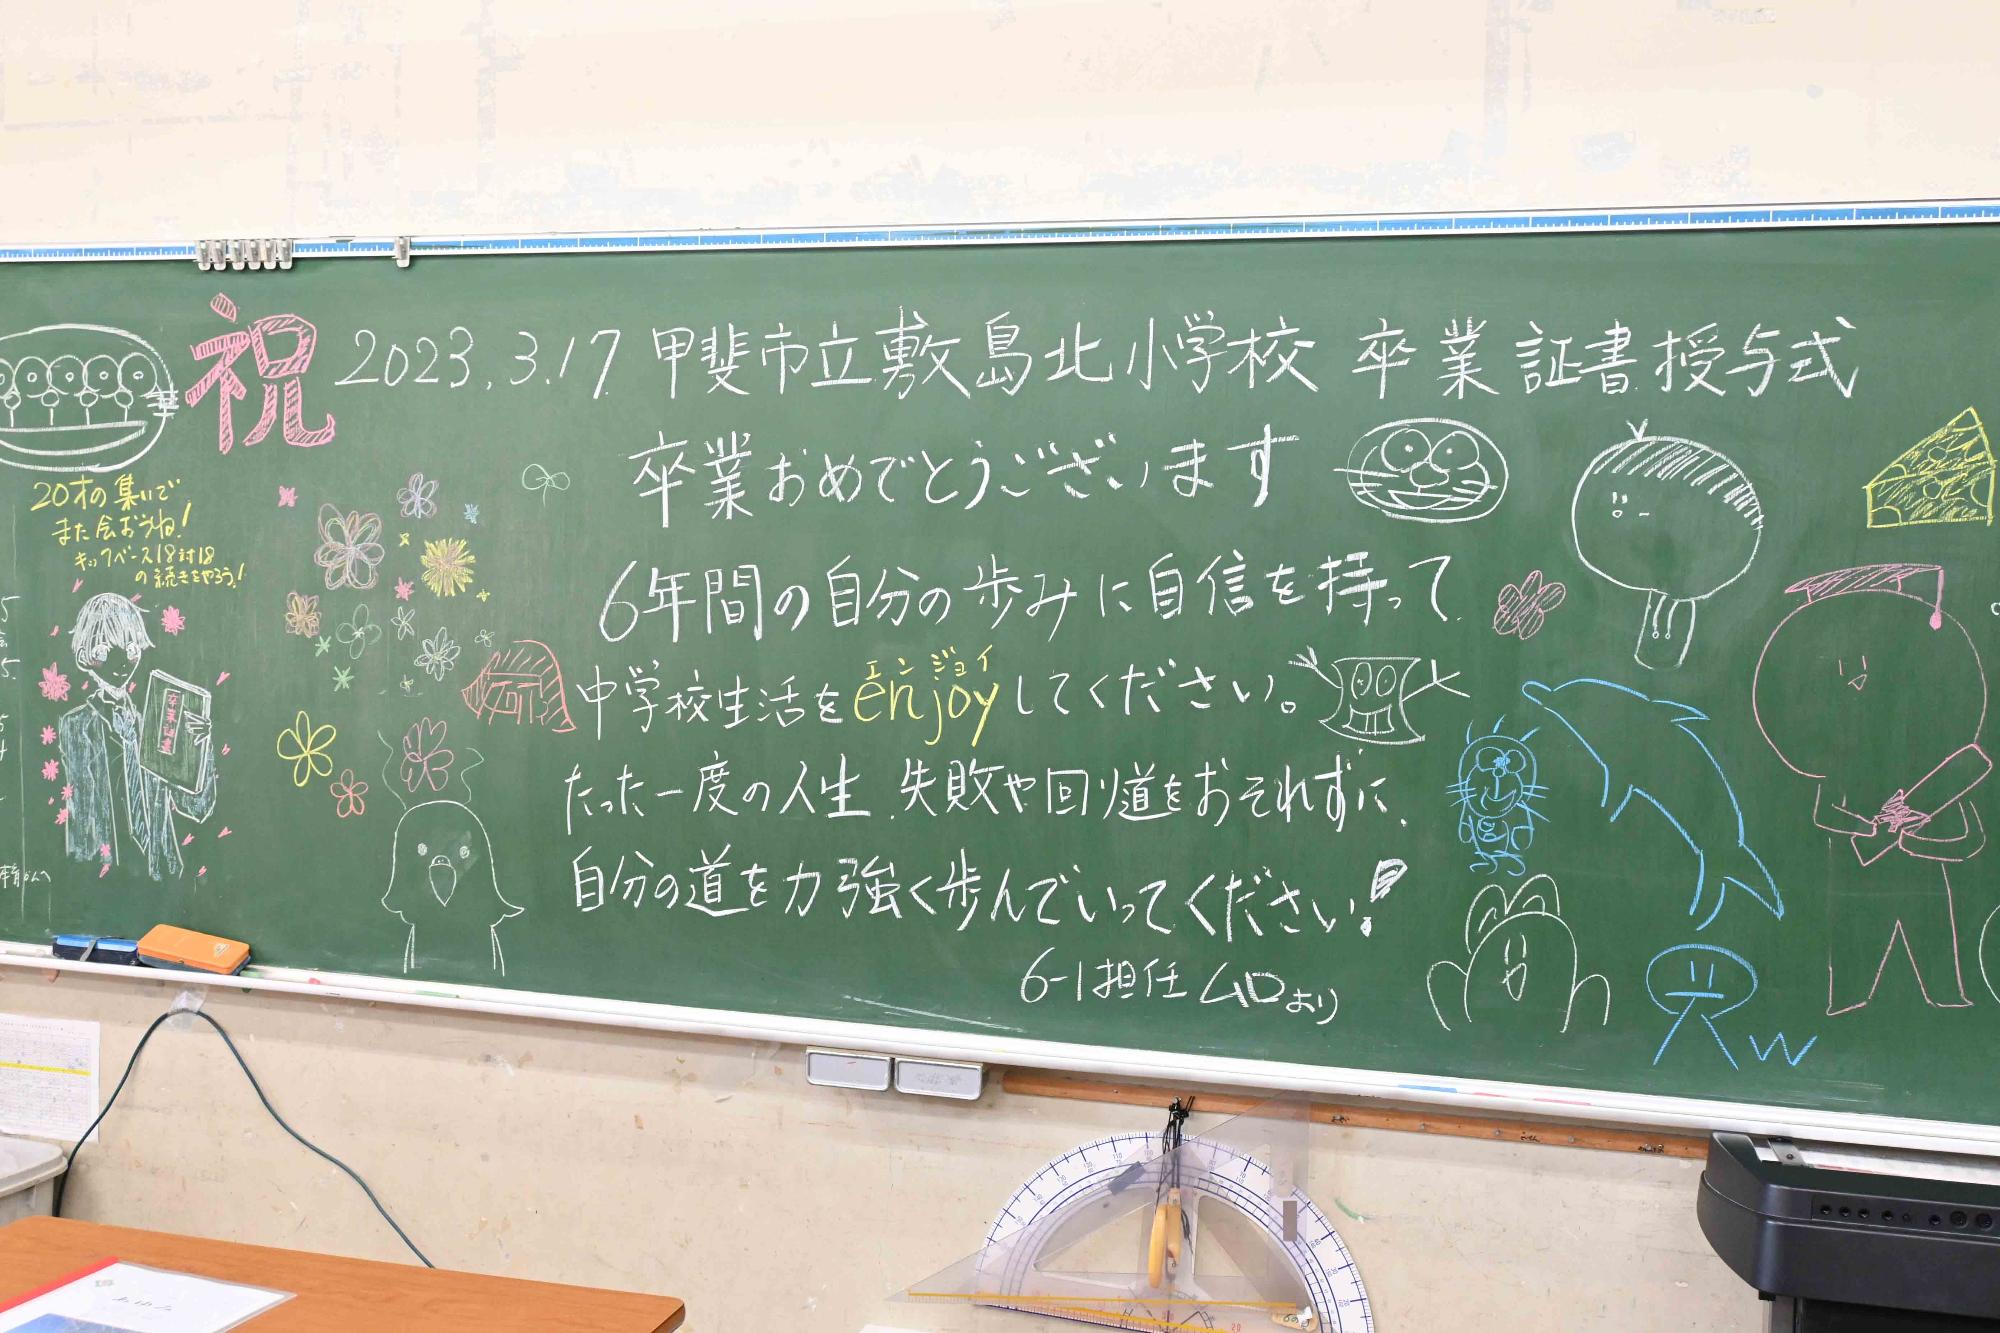 祝
2023.3.17 甲斐市立敷島北小学校 卒業証書授与式
卒業おめでとうございます
6年間の自分の歩みに自信を持って
エンジョイ
中学校生活をenjoyしてください。
たった一度の人生、失敗や回り道をおそれずに、
自分の道を力強く歩んでいってください!
6-1担任 ムロより
20才の集いで
また会おうね!
キックベース18対18
の続きをやろう!
卒業証書
W